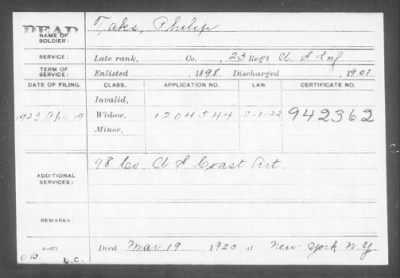 DEAD
NAME OF SOLDIER: Taks, Philip
SERVICE: Late rank, Co. , 23 Reg't U S Inf
TERM OF SERVICE: Enlisted , 1898 Discharged , 1901
DATE OF FILING. CLASS. APPLICATION NO. LAW. CERTIFICATE NO.
Invalid,
1923 Apr 19 Widow, 1204544 942362
Minor,
ADDITIONAL SERVICES: 98 Co. U S Coast Art.
REMARKS:
Died Mar 19 , 1923 at New York N.Y.